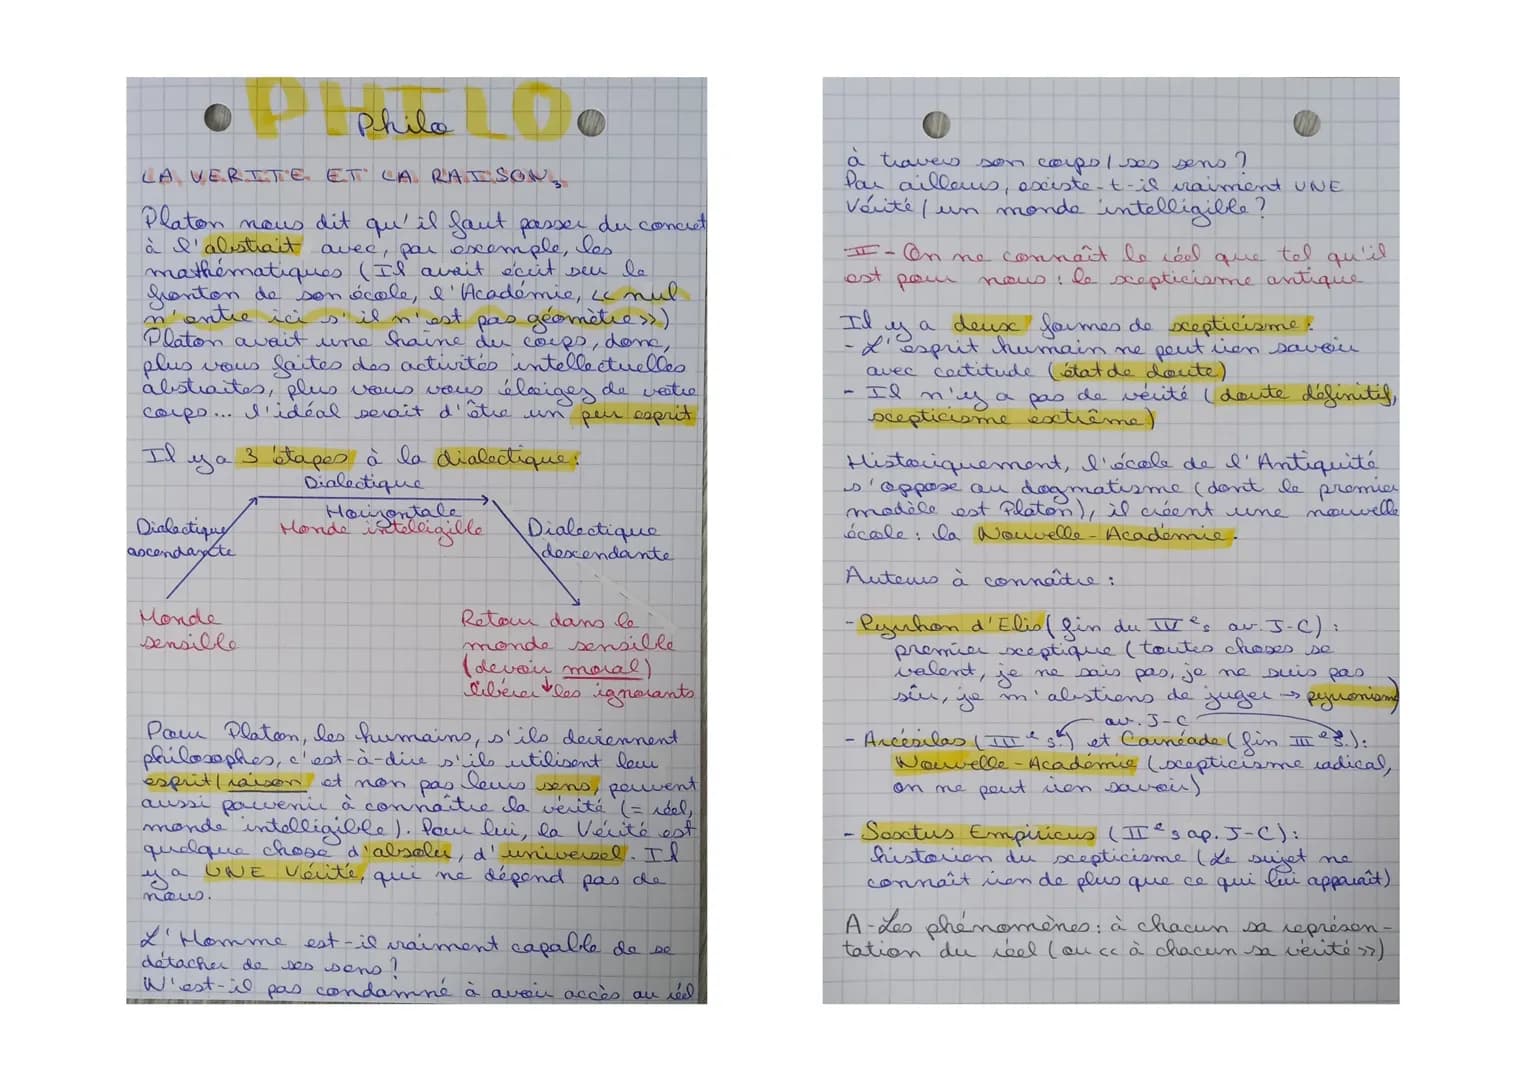 PHILO
Philo
LA VERITE ET LA RAISON
Platon nous dit qu'il faut passer du concret
à l'abstrait avec, par exemple, les
mathématiques (Il avait écrit sur le
fronton de son école, l'Académie, << nul
n'entre ici s'il n'est pas géomètre >>)
Platon avait une haine du corps, donc,
plus vous faites des activités intellectuelles
abstraites, plus vous vous éloignez de votre
corps... l'idéal serait d'être un pur esprit
Il y a 3 étapes à la dialectique:
Dialectique
Horizontale
Monde intelligible
Dialectique
ascendante
Dialectique
descendante
Monde
sensible
Retour dans le
monde sensible
(devoir moral)
libérer les ignorants
Pour Platon, les humains, s'ils deviennent
philosophes, c'est-à-dire s'ils utilisent leur
esprit/raison et non pas leurs sens, peuvent
aussi parvenir à connaître la vérité (= réel,
monde intelligible). Pour lui, la Vérité est
quelque chose d'absolu, d'universel. Il
y a UNE Vérité, qui ne dépend pas de
nous.
L'Homme est-il vraiment capable de se
détacher de ses sens?
N'est-il pas condamné à avoir accès au réel
à travers son corps/ses sens?
Par ailleurs, existe-t-il vraiment UNE
Vérité/un monde intelligible?
II - On ne connaît le réel que tel qu'il
est pour nous: le scepticisme antique
Il y a deux formes de scepticisme:
- L'esprit humain ne peut rien savoir
avec certitude (état de doute)
- Il n'y a pas de vérité (doute définitif,
scepticisme extrême)
Historiquement, l'école de l'Antiquité
s'oppose au dogmatisme (dont le premier
modèle est Platon), il créent une nouvelle
école: la Nouvelle-Académie.
Auteurs à connaître:
- Pyrrhon d'Elis (fin du IV es av. J-C):
premier sceptique (toutes choses se
valent, je ne sais pas, je ne suis pas
sûr, je m'abstiens de juger → pyronisme)
av. J-C
- Arcésilas (III e s.) et Carnéade (fin III e s.):
Nouvelle-Académie (scepticisme radical,
on ne peut rien savoir)
- Sexctus Empiricus (II e s ap. J-C):
historien du scepticisme (Le sujet ne
connaît rien de plus que ce qui lui apparaît)
A - Les phénomènes: à chacun sa représen-
tation du réel (ou << à chacun sa vérité >>)